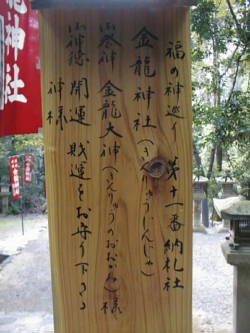 福の神巡り 第十一番納札社
金龍神社（きんりゅうじんじゃ）
御祭神 金龍大神（きんりゅうのおおかみ）様
御神徳 開運 財運をお守り下さる
神様
龍神社